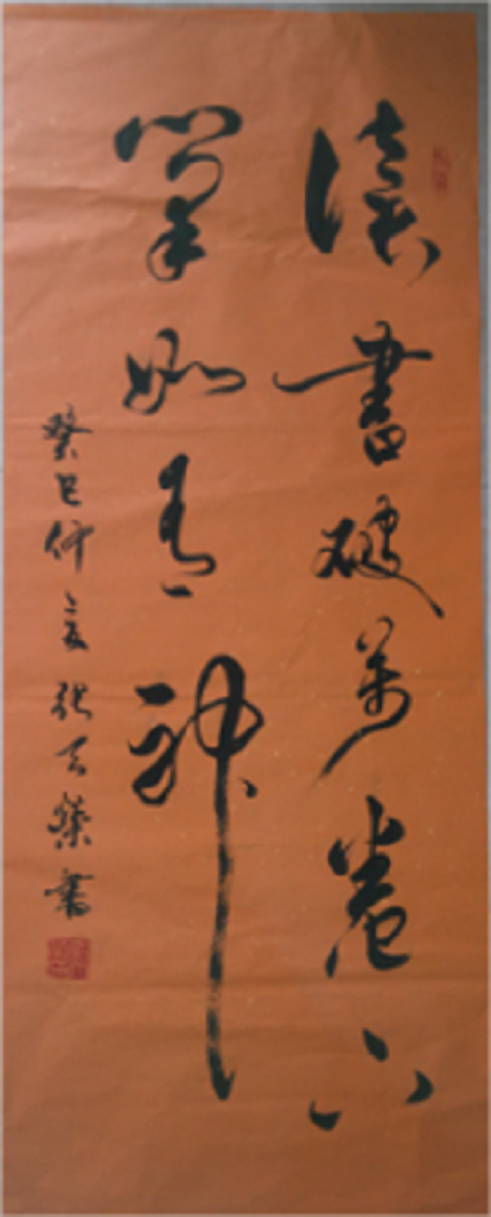 讀書破萬卷下
筆如有神
癸巳仲夏張天榮書